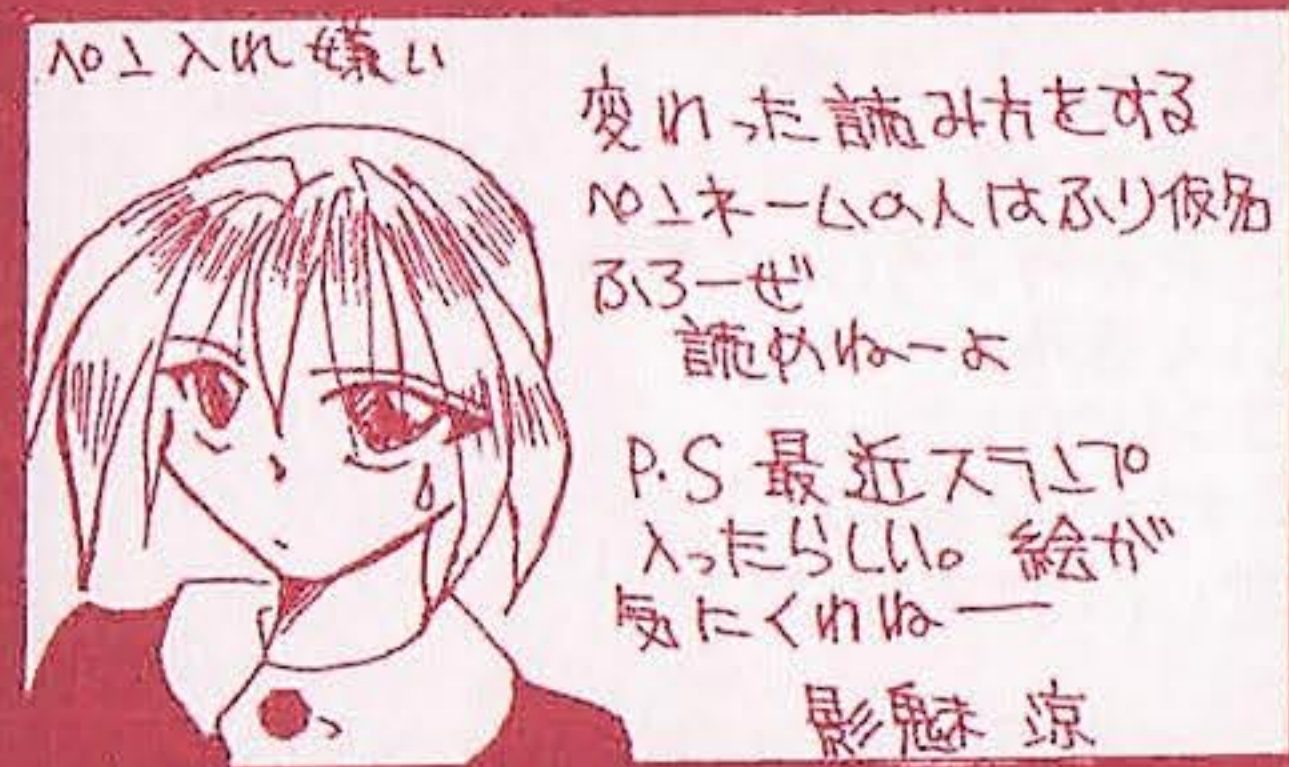 ペン入れ嫌い
変わった読み方をする
ペンネームの人はふり仮名
ふろーぜ
読めねーよ
P.S 最近スランプ
入ったらしい。絵が
気にくわねー
影魅 涼